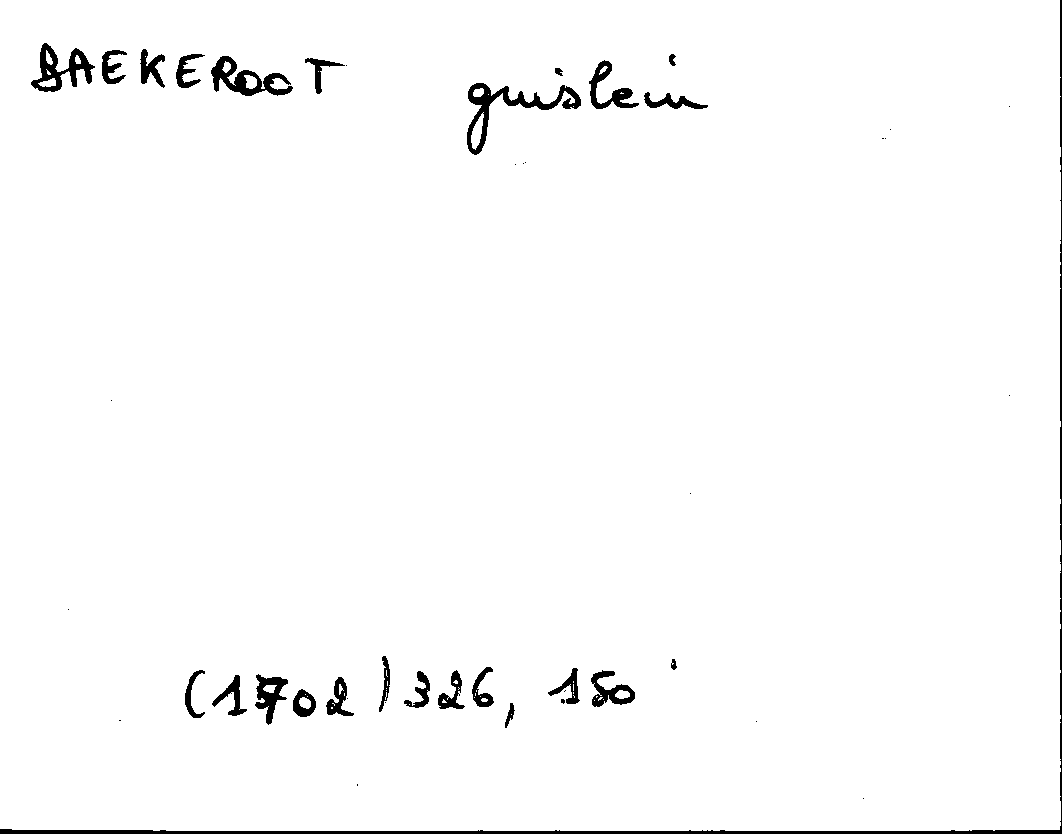 BAEKEROOT guislein
(1702) 326, 150